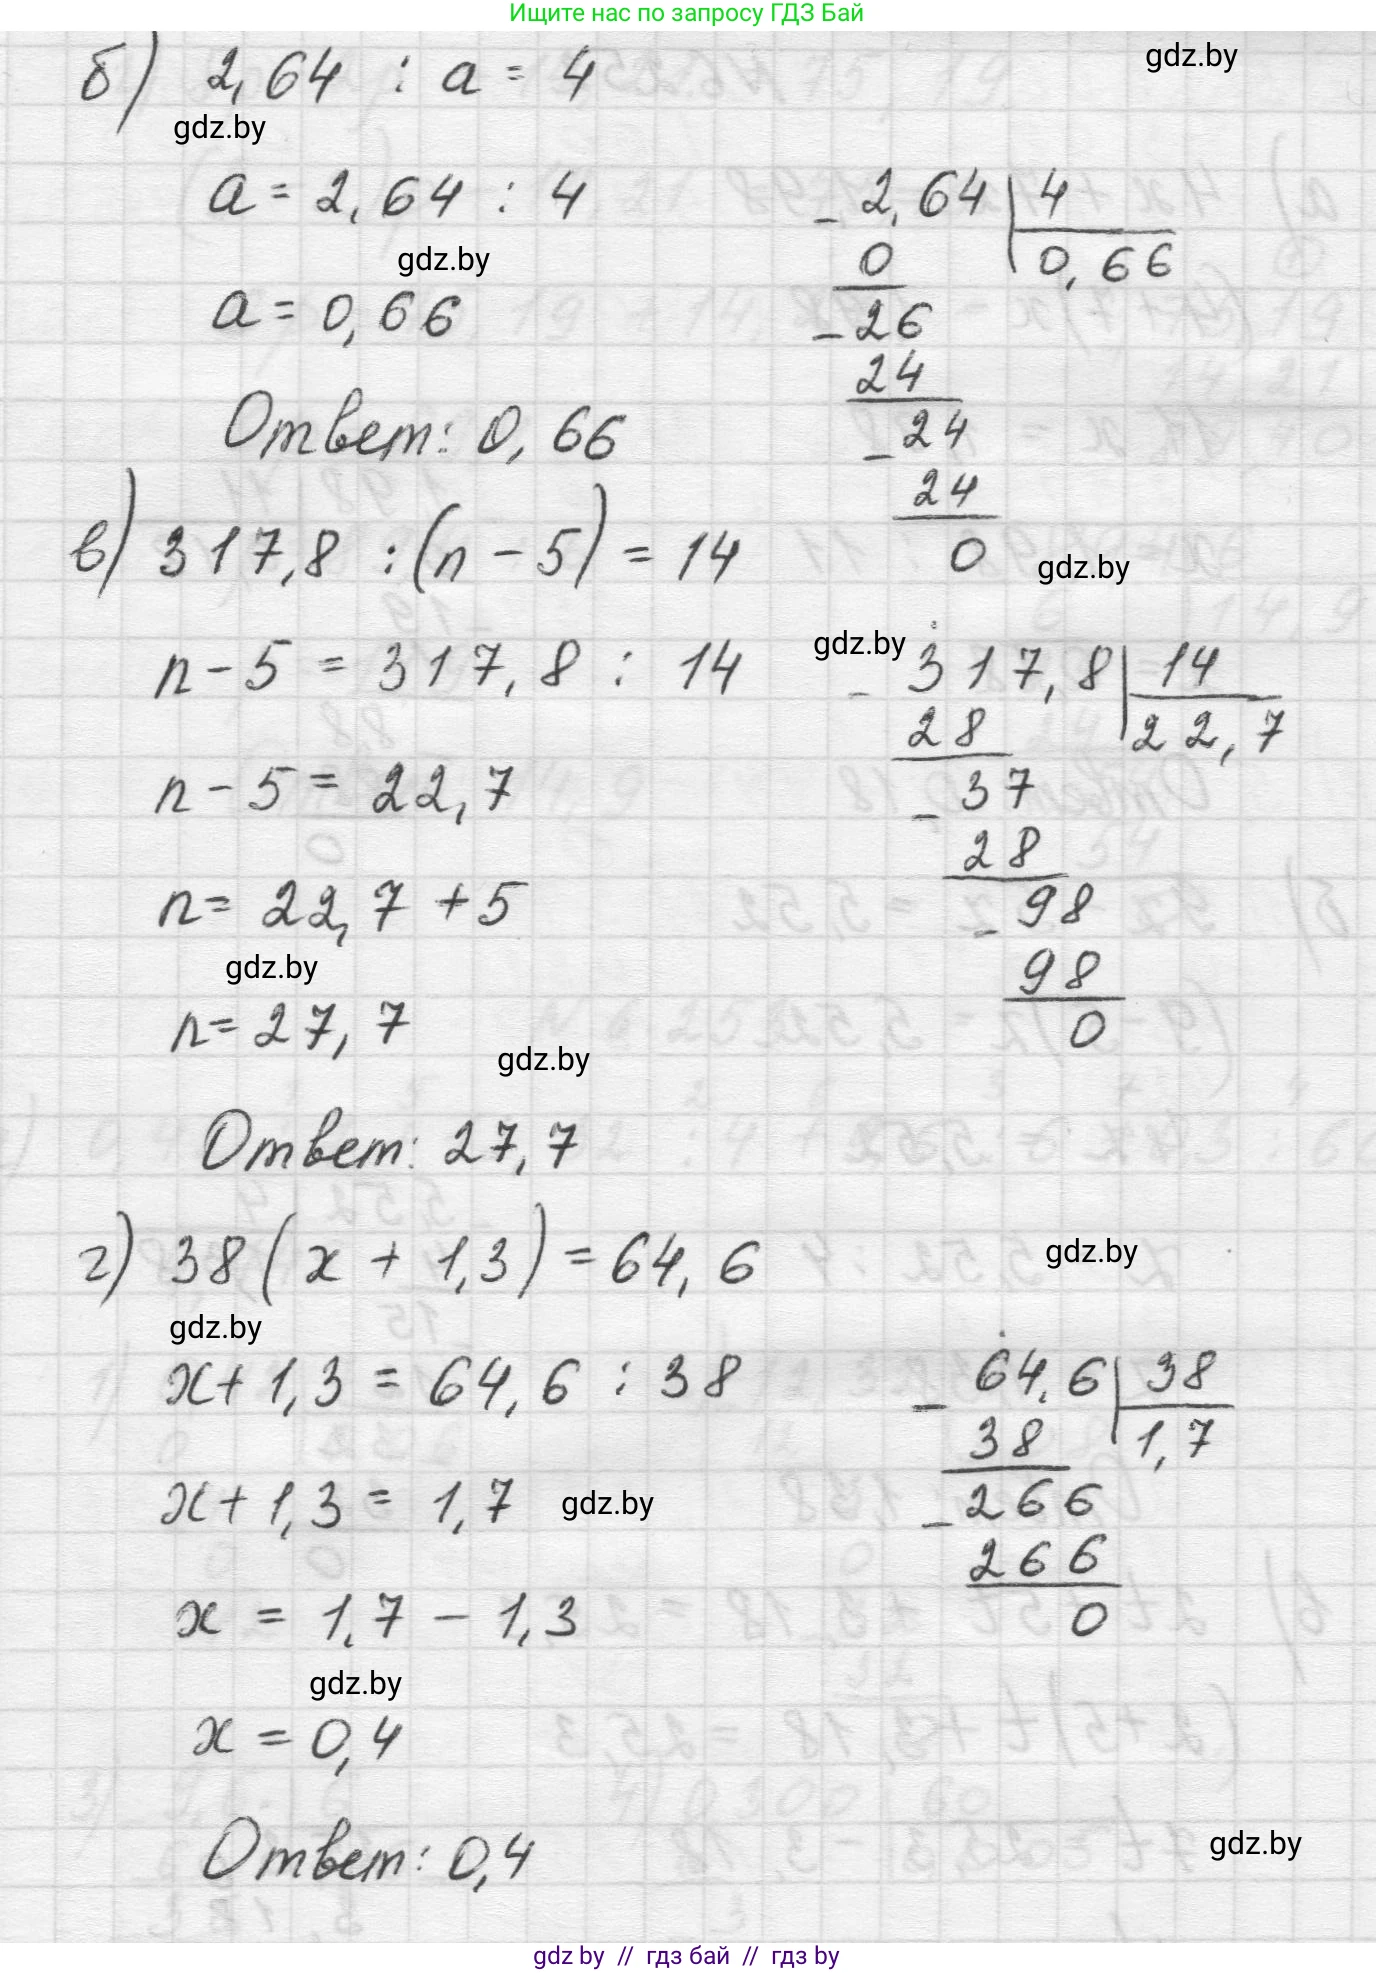 Ищите нас по запросу ГДЗ Бай
gdz.by
б) 2,64 : a = 4
gdz.by
a = 2,64 : 4
gdz.by
a = 0,66
Ответ: 0,66
- 2,64 | 4
0 0,66
- 26
24
- 24
24
0
gdz.by
в) 317,8 : (n - 5) = 14
n - 5 = 317,8 : 14
n - 5 = 22,7
n = 22,7 + 5
gdz.by
n = 27,7
gdz.by
Ответ: 27,7
gdz.by
- 317,8 | 14
28 22,7
- 37
28
- 98
98
0
г) 38 (x + 1,3) = 64,6
gdz.by
gdz.by
x + 1,3 = 64,6 : 38
x + 1,3 = 1,7
gdz.by
x = 1,7 - 1,3
gdz.by
x = 0,4
Ответ: 0,4
- 64,6 | 38
38 1,7
- 266
266
0
gdz.by
gdz by // гдз бай // гдз by